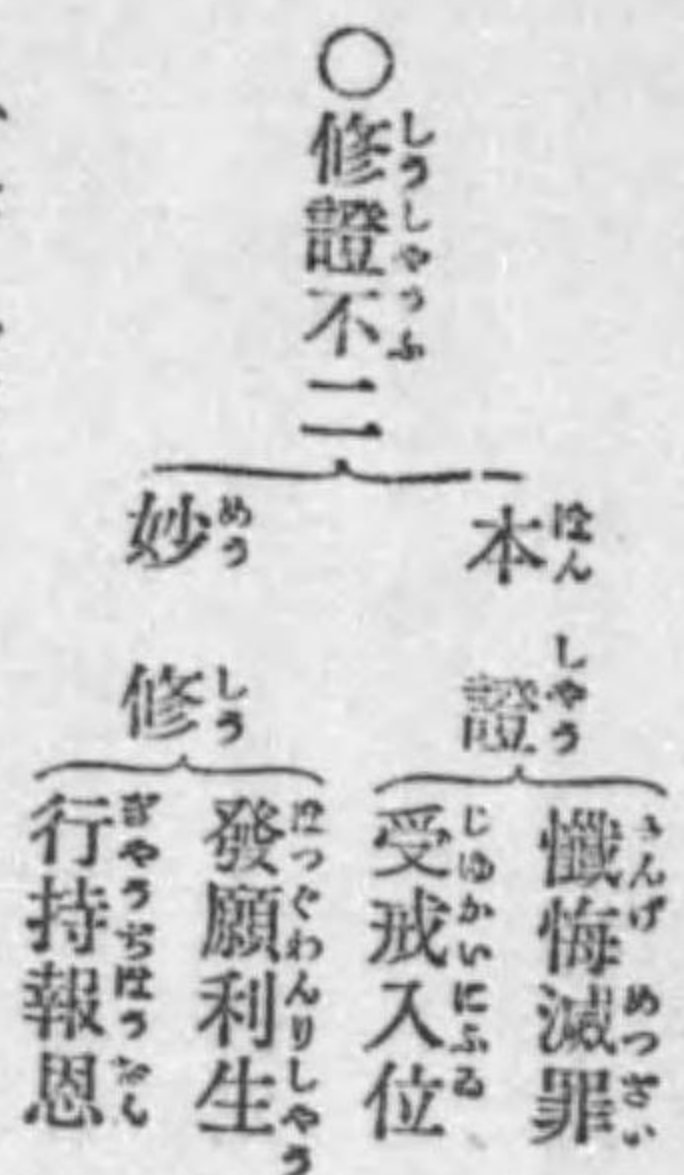 ○修證不二
しうしやうふ
本證
ほんしやう
懺悔滅罪
さんげめつざい
受戒入位
じゆかいにふゐ
妙修
めうしう
發願利生
ほつぐわんりしやう
行持報恩
ぎやうぢほうおん